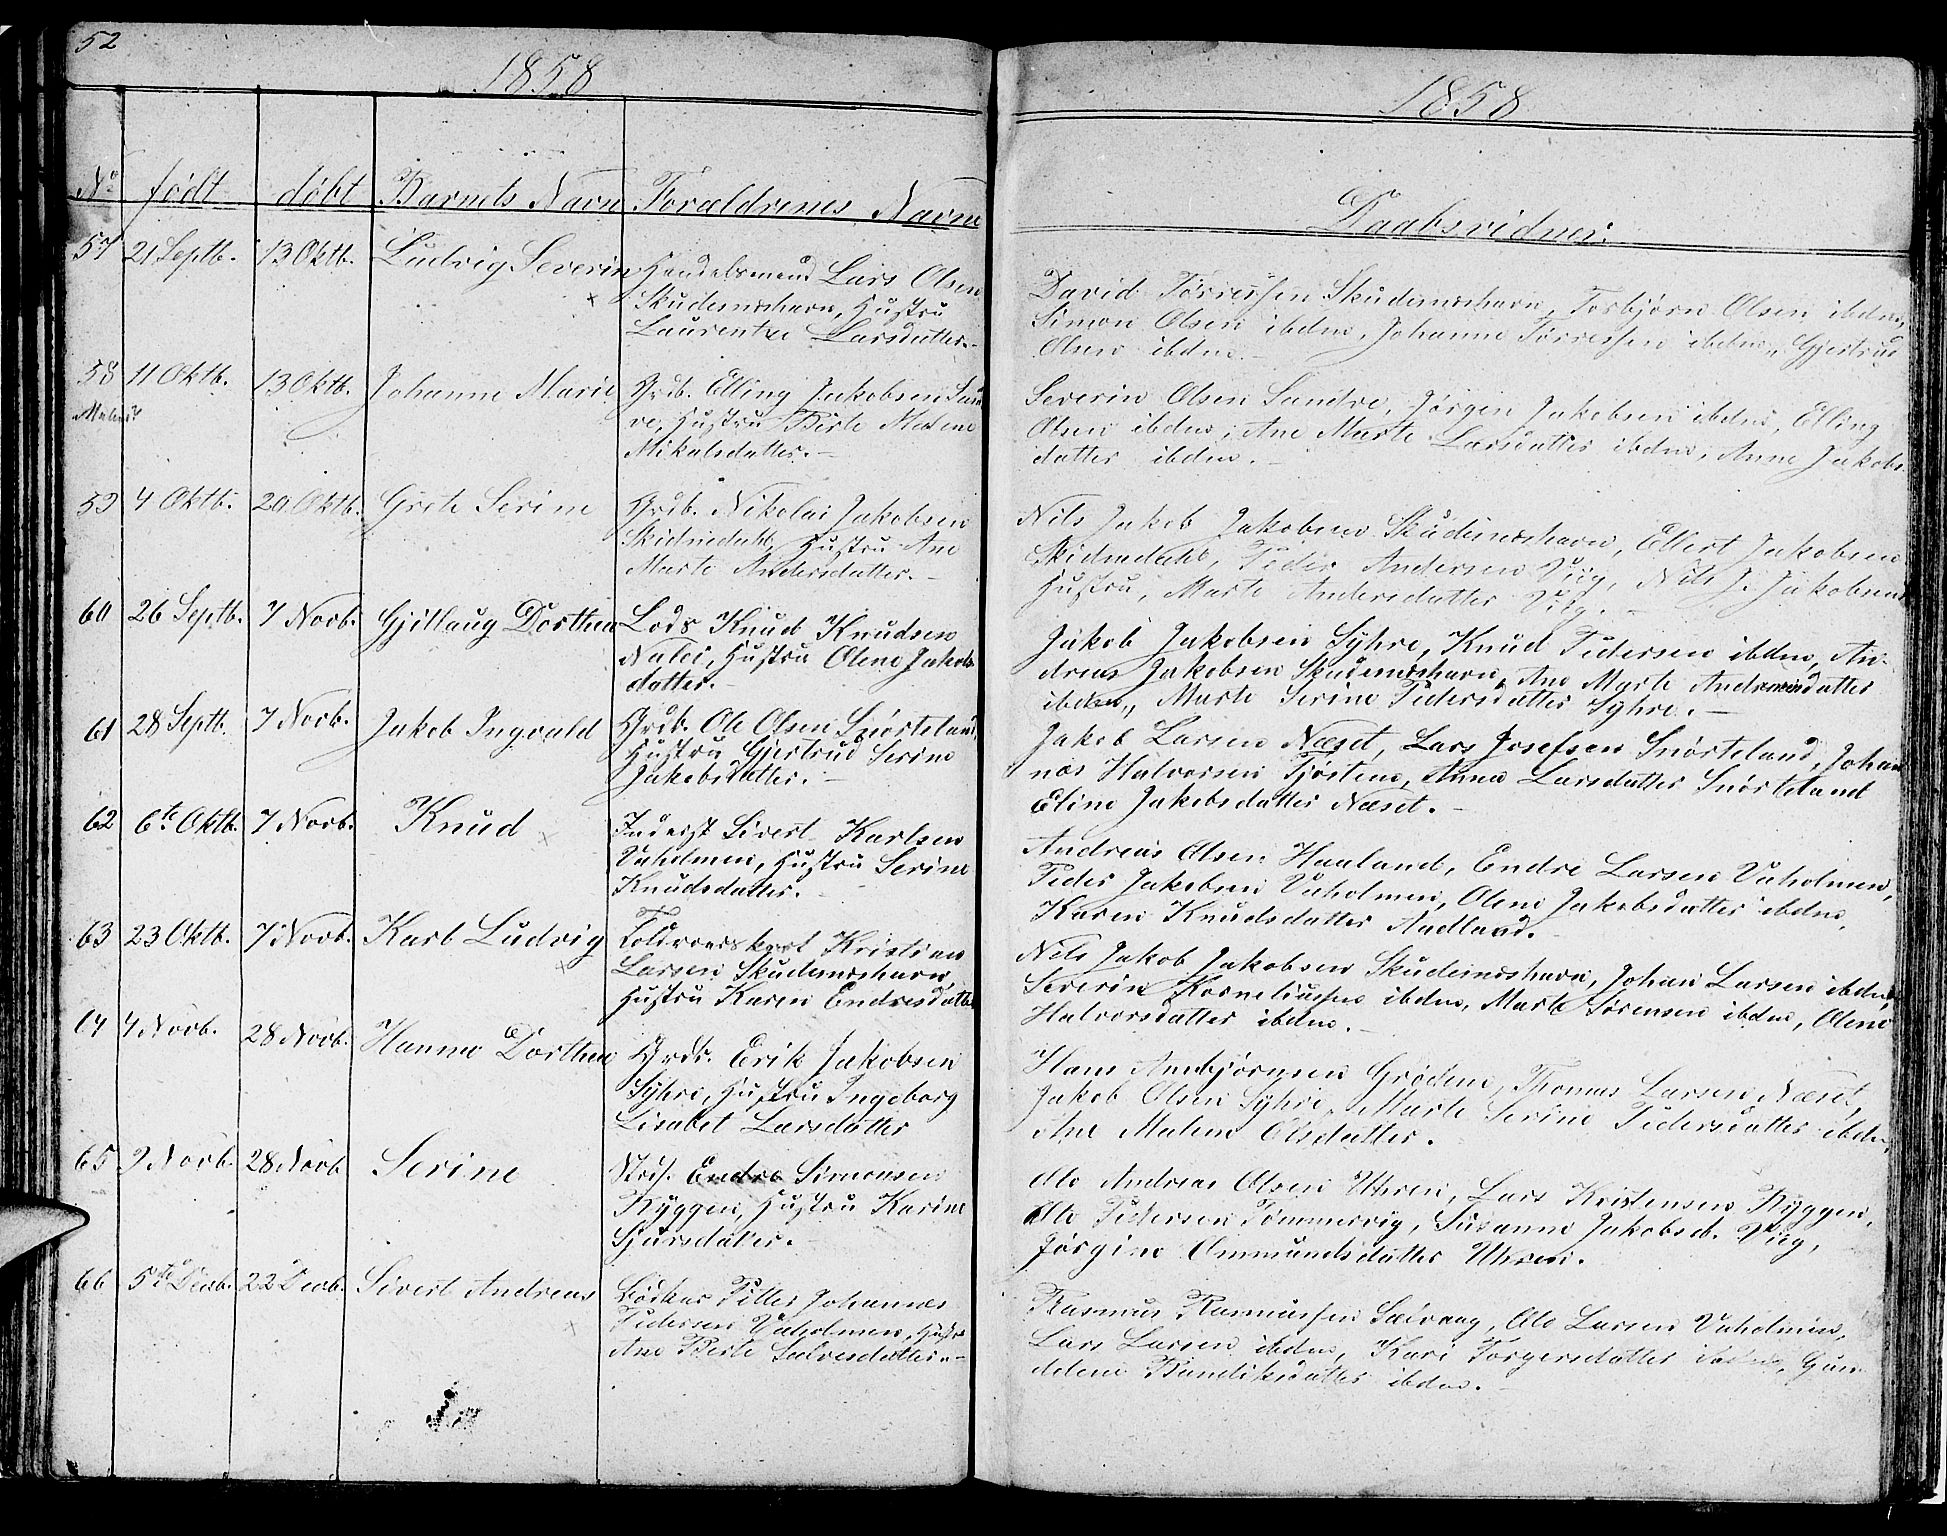 52
1858
No født døbt Barnets Navn Forældrenes Navne
57 21 Septb. 13 Oktb. Ludvig Severin Handelsmand Lars Olsen
Skudenæshavn, Hustru
Laurentze Larsdatter.-
58 11 Oktb. 13 Oktb. Johanne Marie Grdb. Elling Jakobsen Sun
ve, Hustru Berte Malene
Mikalsdatter.-
59 4 Oktb. 20 Oktb. Grete Serine Grdb. Nikolai Jakobsen
Skidnedahl Hustru Ane
Marte Andersdatter.-
60 26 Septb. 7 Novb. Gjitlaug Dorthea Lods Knud Knudsen
Hustru Olene Jakobs
datter.-
61 28 Septb. 7 Novb. Jakob Ingvald Grdb. Ole Olsen Snørteland,
Hustru Gjertrud Serine
Jakobsdatter.-
62 6te Oktb. 7 Novb. Knud Inderst Sivert Karlsen
Vaholmen, Hustru Serine
Knudsdatter.
63 23 Oktb. 7 Novb. Karl Ludvig Kristian
Larsen Skudenæshavn,
Hustru Karen Endresdatt.
64 4 Novb. 28 Novb. Hanne Dorthea Grdb. Erik Jakobsen
Syhre, Hustru Ingeborg
Lisabet Larsdatter
65 9 Novb. 28 Novb Serine Endre Simonsen
Ryggen, Hustru Karine
Sjursdatter.
66 5te Decb. 22 Decb. Sivert Andreas Bødker Petter Johannes
Pedersen Vaholmen, Hustru
Ane Berte Salvesdatter.-
1858
Daabsvidner.
David Tørressen Skudenæshavn, Torbjørn Olsen ibden,
Simon Olsen ibden, Johanne Tørressen ibden, Gjertrud
Olsen ibden.-
Severin Olsen Sandve, Jørgen Jakobsen ibden, Elling
Olsen ibden, Ane Marte Larsdatter ibden, Anne Jakobs-
datter ibden.-
Nils Jakob Jakobsen Skudenæshavn, Ellert Jakobsen
Skidnedahl, Peder Andersen Viig, Nils J. Jakobsens
Hustru, Marte Andersdatter Viig.-
Jakob Jakobsen Syhre, Knud Pedersen ibden, An-
dreas Jakobsen Skudenæshavn, Ane Marte Andreasdatter
ibden, Marte Serine Pedersdatter Syhre.-
Jakob Larsen Næset, Lars Josefsen Snørteland, Johan
nes Halvorsen Tjøsten, Anna Larsdatter Snørteland
Eline Jakobsdatter Næset.-
Andreas Olsen Haaland, Endre Larsen Vaholmen,
Peder Jakobsen Vaholmen, Olene Jakobsdatter ibden,
Karen Knudsdatter Aadland.
Nils Jakob Jakobsen Skudenæshavn, Johan Larsen ibden,
Severin Korneliussen ibden, Marte Sørensen ibden, Olene
Halvorsdatter ibden.-
Hans Ambjørnsen Grøden, Thomas Larsen Næset,
Jakob Olsen Syhre, Marte Serine Pedersdatter ibden,
Ane Malene Olsdatter.
Ole Andreas Olsen Uhren, Lars Kristensen Ryggen,
Ole Pedersen Tømmervig, Susanne Jakobsd. Viig,
Jørgine Ommundsdatter Uhren.
Rasmus Rasmussen Salvaag, Ole Larsen Vaholmen,
Lars Larsen ibden, Kari Torgersdatter ibden, Gun-
ildene Bendiksdatter ibden.-